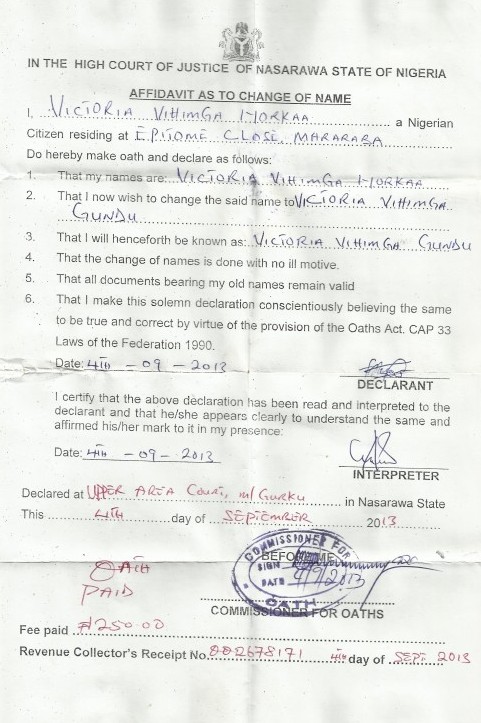 IN THE HIGH COURT OF JUSTICE OF NASARAWA STATE OF NIGERIA
AFFIDAVIT AS TO CHANGE OF NAME
I, VICTORIA VIHIMGA HORKAA a Nigerian
Citizen residing at EPITOME CLOSE MARARABA
Do hereby make oath and declare as follows:
1. That my names are: VICTORIA VIHIMGA HORKAA
2. That I now wish to change the said name to VICTORIA VIHIMGA
GUNDU
3. That I will henceforth be known as: VICTORIA VIHIMGA GUNDU
4. That the change of names is done with no ill motive.
5. That all documents bearing my old names remain valid
6. That I make this solemn declaration conscientiously believing the same
to be true and correct by virtue of the provision of the Oaths Act. CAP 33
Laws of the Federation 1990.
Date: 4TH - 09 - 2013
DECLARANT
I certify that the above declaration has been read and interpreted to the
declarant and that he/she appears clearly to understand the same and
affirmed his/her mark to it in my presence:
Date: 4TH - 09 - 2013
INTERPRETER
Declared at UPPER AREA COURT, M/GURKU in Nasarawa State
This 4TH day of SEPTEMBER 2013
BEFORE ME
COMMISSIONER FOR
SIGN
DATE 4/9/2013
OATH
OATH
PAID
COMMISSIONER FOR OATHS
Fee paid ₦250.00
Revenue Collector's Receipt No. 002678171 4TH day of SEPT. 2013